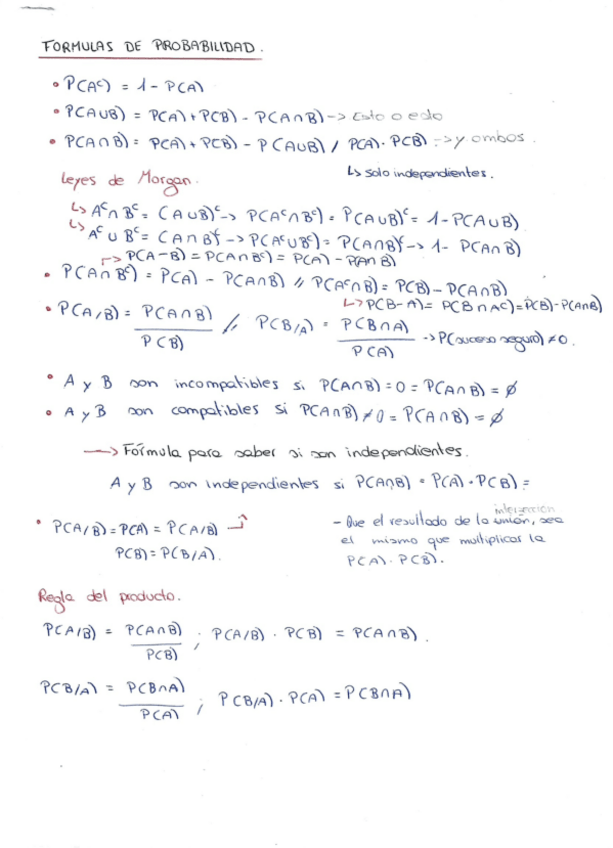 FORMULAS DE PROBABILIDAD.
• P(Aᶜ) = 1 - P(A)
• P(A∪B) = P(A) + P(B) - P(A∩B) -> Esto o esto
• P(A∩B) = P(A) + P(B) - P(A∪B) / P(A)· P(B) -> y ambos.
↳ solo independientes.
Leyes de Morgan.
↳ Aᶜ∩Bᶜ = (A∪B)ᶜ -> P(Aᶜ∩Bᶜ) = P(A∪B)ᶜ = 1-P(A∪B)
↳ Aᶜ∪Bᶜ = (A∩B)ᶜ -> P(Aᶜ∪Bᶜ) = P(A∩B)ᶜ -> 1- P(A∩B)
-> P(A-B) = P(A∩Bᶜ) = P(A) - P(A∩B)
• P(A∩Bᶜ) = P(A) - P(A∩B) // P(Aᶜ∩B) = P(B) - P(A∩B)
↳ P(B-A) = P(B∩Aᶜ) = P(B) - P(A∩B)
• P(A/B) = P(A∩B) / P(B) // P(B/A) = P(B∩A) / P(A) -> P(suceso seguro) ≠ 0.
• A y B son incompatibles si P(A∩B) = 0 = P(A∩B) = ∅
• A y B son compatibles si P(A∩B) ≠ 0 = P(A∩B) = ∅
—> Fórmula para saber si son independientes.
A y B son independientes si P(A∩B) = P(A) · P(B) =
• P(A/B) = P(A) = P(A/B)
P(B) = P(B/A).
intersección
- Que el resultado de la unión, sea
el mismo que multiplicar la
P(A) · P(B).
Regla del producto.
P(A/B) = P(A∩B) / P(B) ; P(A/B) · P(B) = P(A∩B).
P(B/A) = P(B∩A) / P(A) ; P(B/A) · P(A) = P(B∩A)